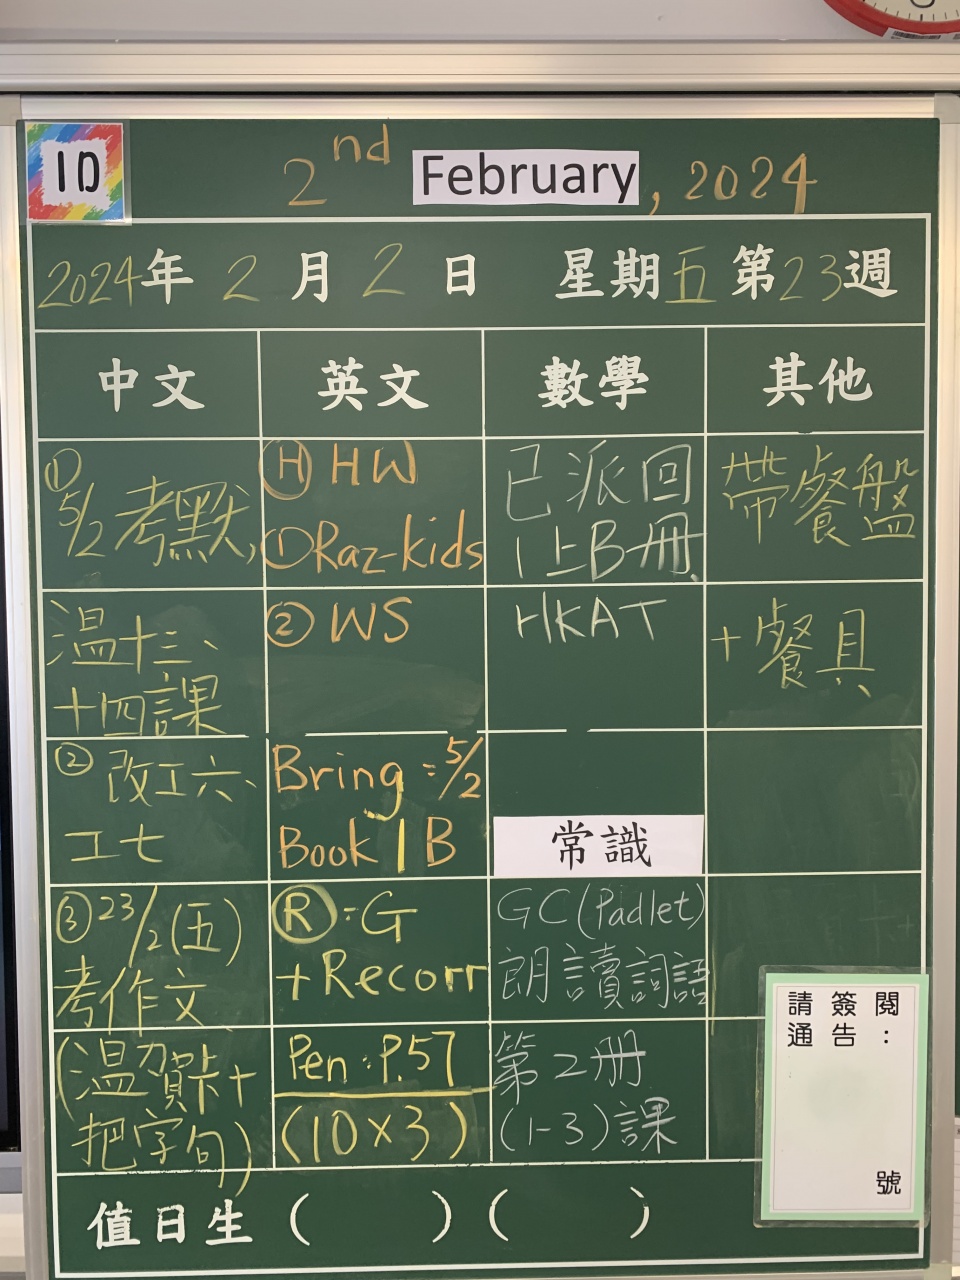 1D
2nd February, 2024
2024年 2月 2日 星期五 第23週
中文
英文
數學
其他
① 5/2 考默,
溫十三、
十四課
② 改工六、
工七
③ 23/2 (五)
考作文
(溫賀卡+
把字句)
Ⓗ HW
① Raz-kids
② WS
Bring : 5/2
Book 1B
Ⓡ : G
+Recorr
Pen : P.57
(10×3)
已派回
1上B冊
HKAT
常識
GC (Padlet)
朗讀詞語
第2冊
(1-3)課
帶餐盤
+餐具
請簽閱
通告：
號
值日生 ( ) ( )